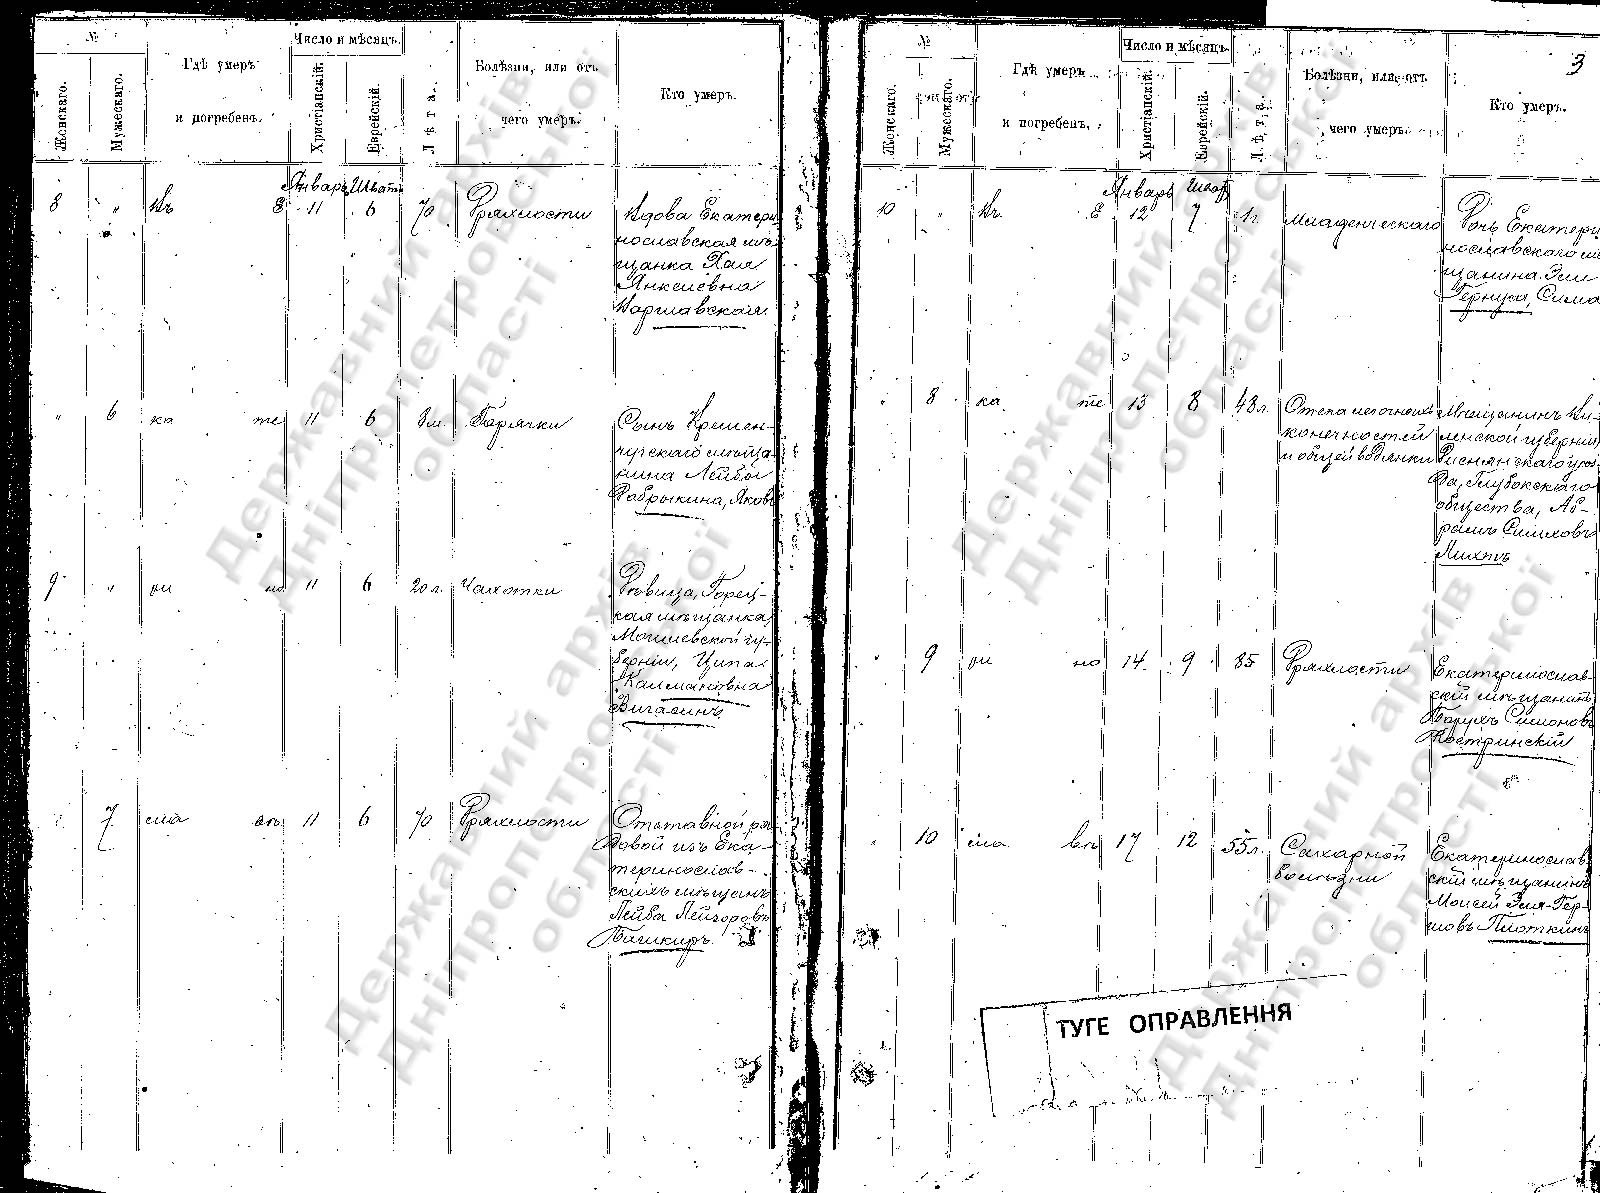 №
Женскаго.
Мужескаго.
Гдѣ умеръ
и погребенъ.
Число и мѣсяцъ.
Христіанскій.
Еврейскій.
Лѣта.
Болѣзни, или отъ
чего умеръ.
Кто умеръ.
8 " Въ Е Январь 11 Шватъ 6 70 Дряхлости
Вдова Екатери
нославская мѣ-
щанка Хая
Янкелевна
Варшавская.
" 6 ка те 11 6 8 м. Горячки
Сынъ Кремен-
чугскаго мѣща-
нина Лейбы
Фабрыкина, Яковъ
9 " ри но 11 6 20 л. Чахотки
Дѣвица, Горец-
кая мѣщанка,
Могилевской гу-
берніи, Ципа
Калмановна
Вигасинъ
7 сла въ 11 6 70 Дряхлости
Отставной ря
довой изъ Ека-
теринослав-
скихъ мѣщанъ
Лейба Лейзоровъ
Башкиръ.
3
№
Женскаго.
Мужескаго.
Гдѣ умеръ
и погребенъ.
Число и мѣсяцъ.
Христіанскій.
Еврейскій.
Лѣта.
Болѣзни, или отъ
чего умеръ.
Кто умеръ.
10 " Въ Е Январь 12 Шватъ 7 1 г. Младенческаго
Дочь Екатери
нославскаго мѣ
щанина Эли
Сима
" 8 ка те 13 8 48 л. Отека
конечностей
и общей водянки
Мѣщанинъ Ви-
ленской губерніи,
Диснянскаго уѣз-
да, Глубокскаго
общества, Аб-
рамъ
" 9 ри но 14 9 85 Дряхлости
Екатеринослав-
скій мѣщанинъ
Борухъ Симоновъ
Костринскій
" 10 сла въ 17 12 55 л. Сахарной
болѣзни
Екатеринослав
скій мѣщанинъ
Моисей Эля-Гер-
шовъ Плоткинъ
ТУГЕ ОПРАВЛЕННЯ
Державний архів
Дніпропетровської
області
Державний архів
Дніпропетровської
області
Державний архів
Дніпропетровської
області
Державний архів
Дніпропетровської
області